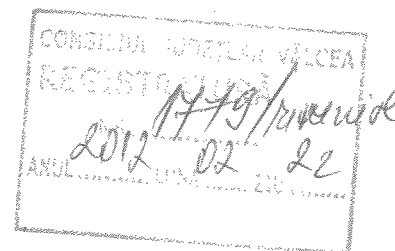 CONSILIUL JUDEŢEAN VÂLCEA
REGISTRATURA
1779/
2012 02 22
ANUL LUNA ZIUA